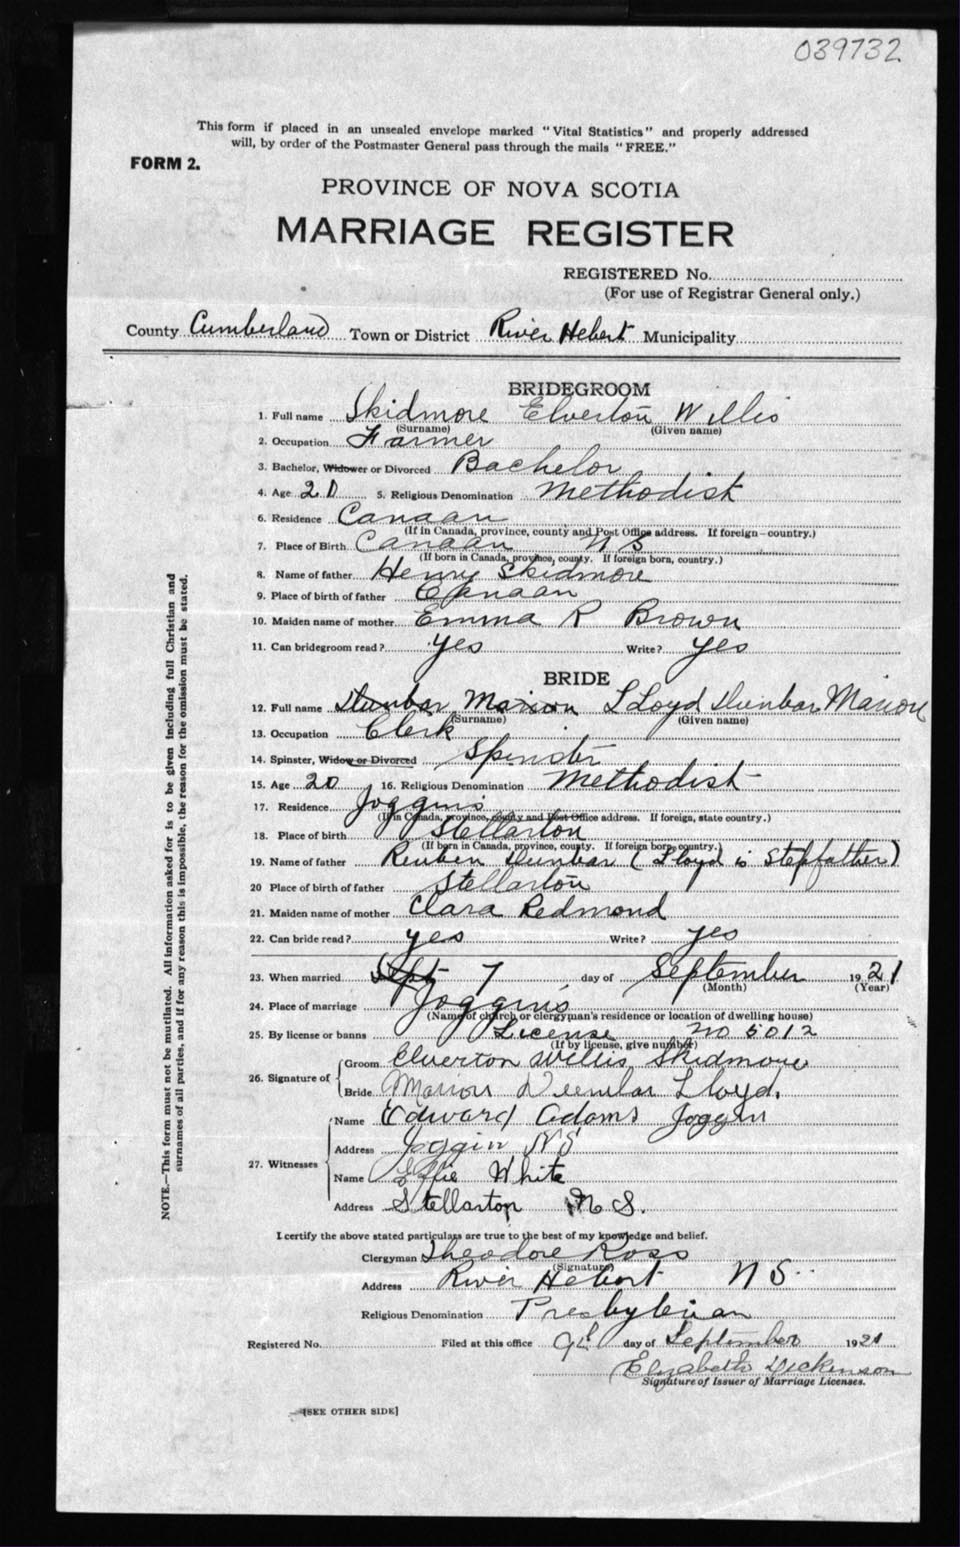 039732
This form if placed in an unsealed envelope marked "Vital Statistics" and properly addressed
will, by order of the Postmaster General pass through the mails "FREE."
FORM 2.
PROVINCE OF NOVA SCOTIA
MARRIAGE REGISTER
REGISTERED No.
(For use of Registrar General only.)
County Cumberland Town or District River Hebert Municipality
BRIDEGROOM
1. Full name Skidmore Elverton Willis
(Surname) (Given name)
2. Occupation Farmer
3. Bachelor, Widower or Divorced Bachelor
4. Age 20 5. Religious Denomination Methodist
6. Residence Canaan
(If in Canada, province, county and Post Office address. If foreign—country.)
7. Place of Birth Canaan N S
(If born in Canada, province, county. If foreign born, country.)
8. Name of father Henry Skidmore
9. Place of birth of father Canaan
10. Maiden name of mother Emma R Brown
11. Can bridegroom read? Yes Write? Yes
BRIDE
12. Full name Dunbar Marion LLoyd Dunbar Marion
(Surname) (Given name)
13. Occupation Clerk
14. Spinster, Widow or Divorced Spinster
15. Age 20 16. Religious Denomination Methodist
17. Residence Joggins
(If in Canada, province, county and Post Office address. If foreign, state country.)
18. Place of birth Stellarton
(If born in Canada, province, county. If foreign born, country.)
19. Name of father Reuben Dunbar (Lloyd is Stepfather)
20 Place of birth of father Stellarton
21. Maiden name of mother Clara Redmond
22. Can bride read? yes Write? yes
23. When married Sept 7 day of September 1921
(Month) (Year)
24. Place of marriage Joggins
(Name of church or clergyman's residence or location of dwelling house)
25. By license or banns License no 5012
(If by license, give number)
26. Signature of Groom Elverton Willis Skidmore
Bride Marion Dunbar Lloyd.
27. Witnesses Name Edward Adams Joggin
Address Joggin NS
Name Effie White
Address Stellarton N S.
I certify the above stated particulars are true to the best of my knowledge and belief.
Clergyman Theodore Ross
(Signature)
Address River Hebert N S
Religious Denomination Presbyterian
Registered No. Filed at this office 9th day of September 1921
Elizabeth Dickenson
Signature of Issuer of Marriage Licenses.
[SEE OTHER SIDE]
NOTE.—This form must not be mutilated. All information asked for is to be given including full Christian and
surnames of all parties, and if for any reason this is impossible, the reason for the omission must be stated.